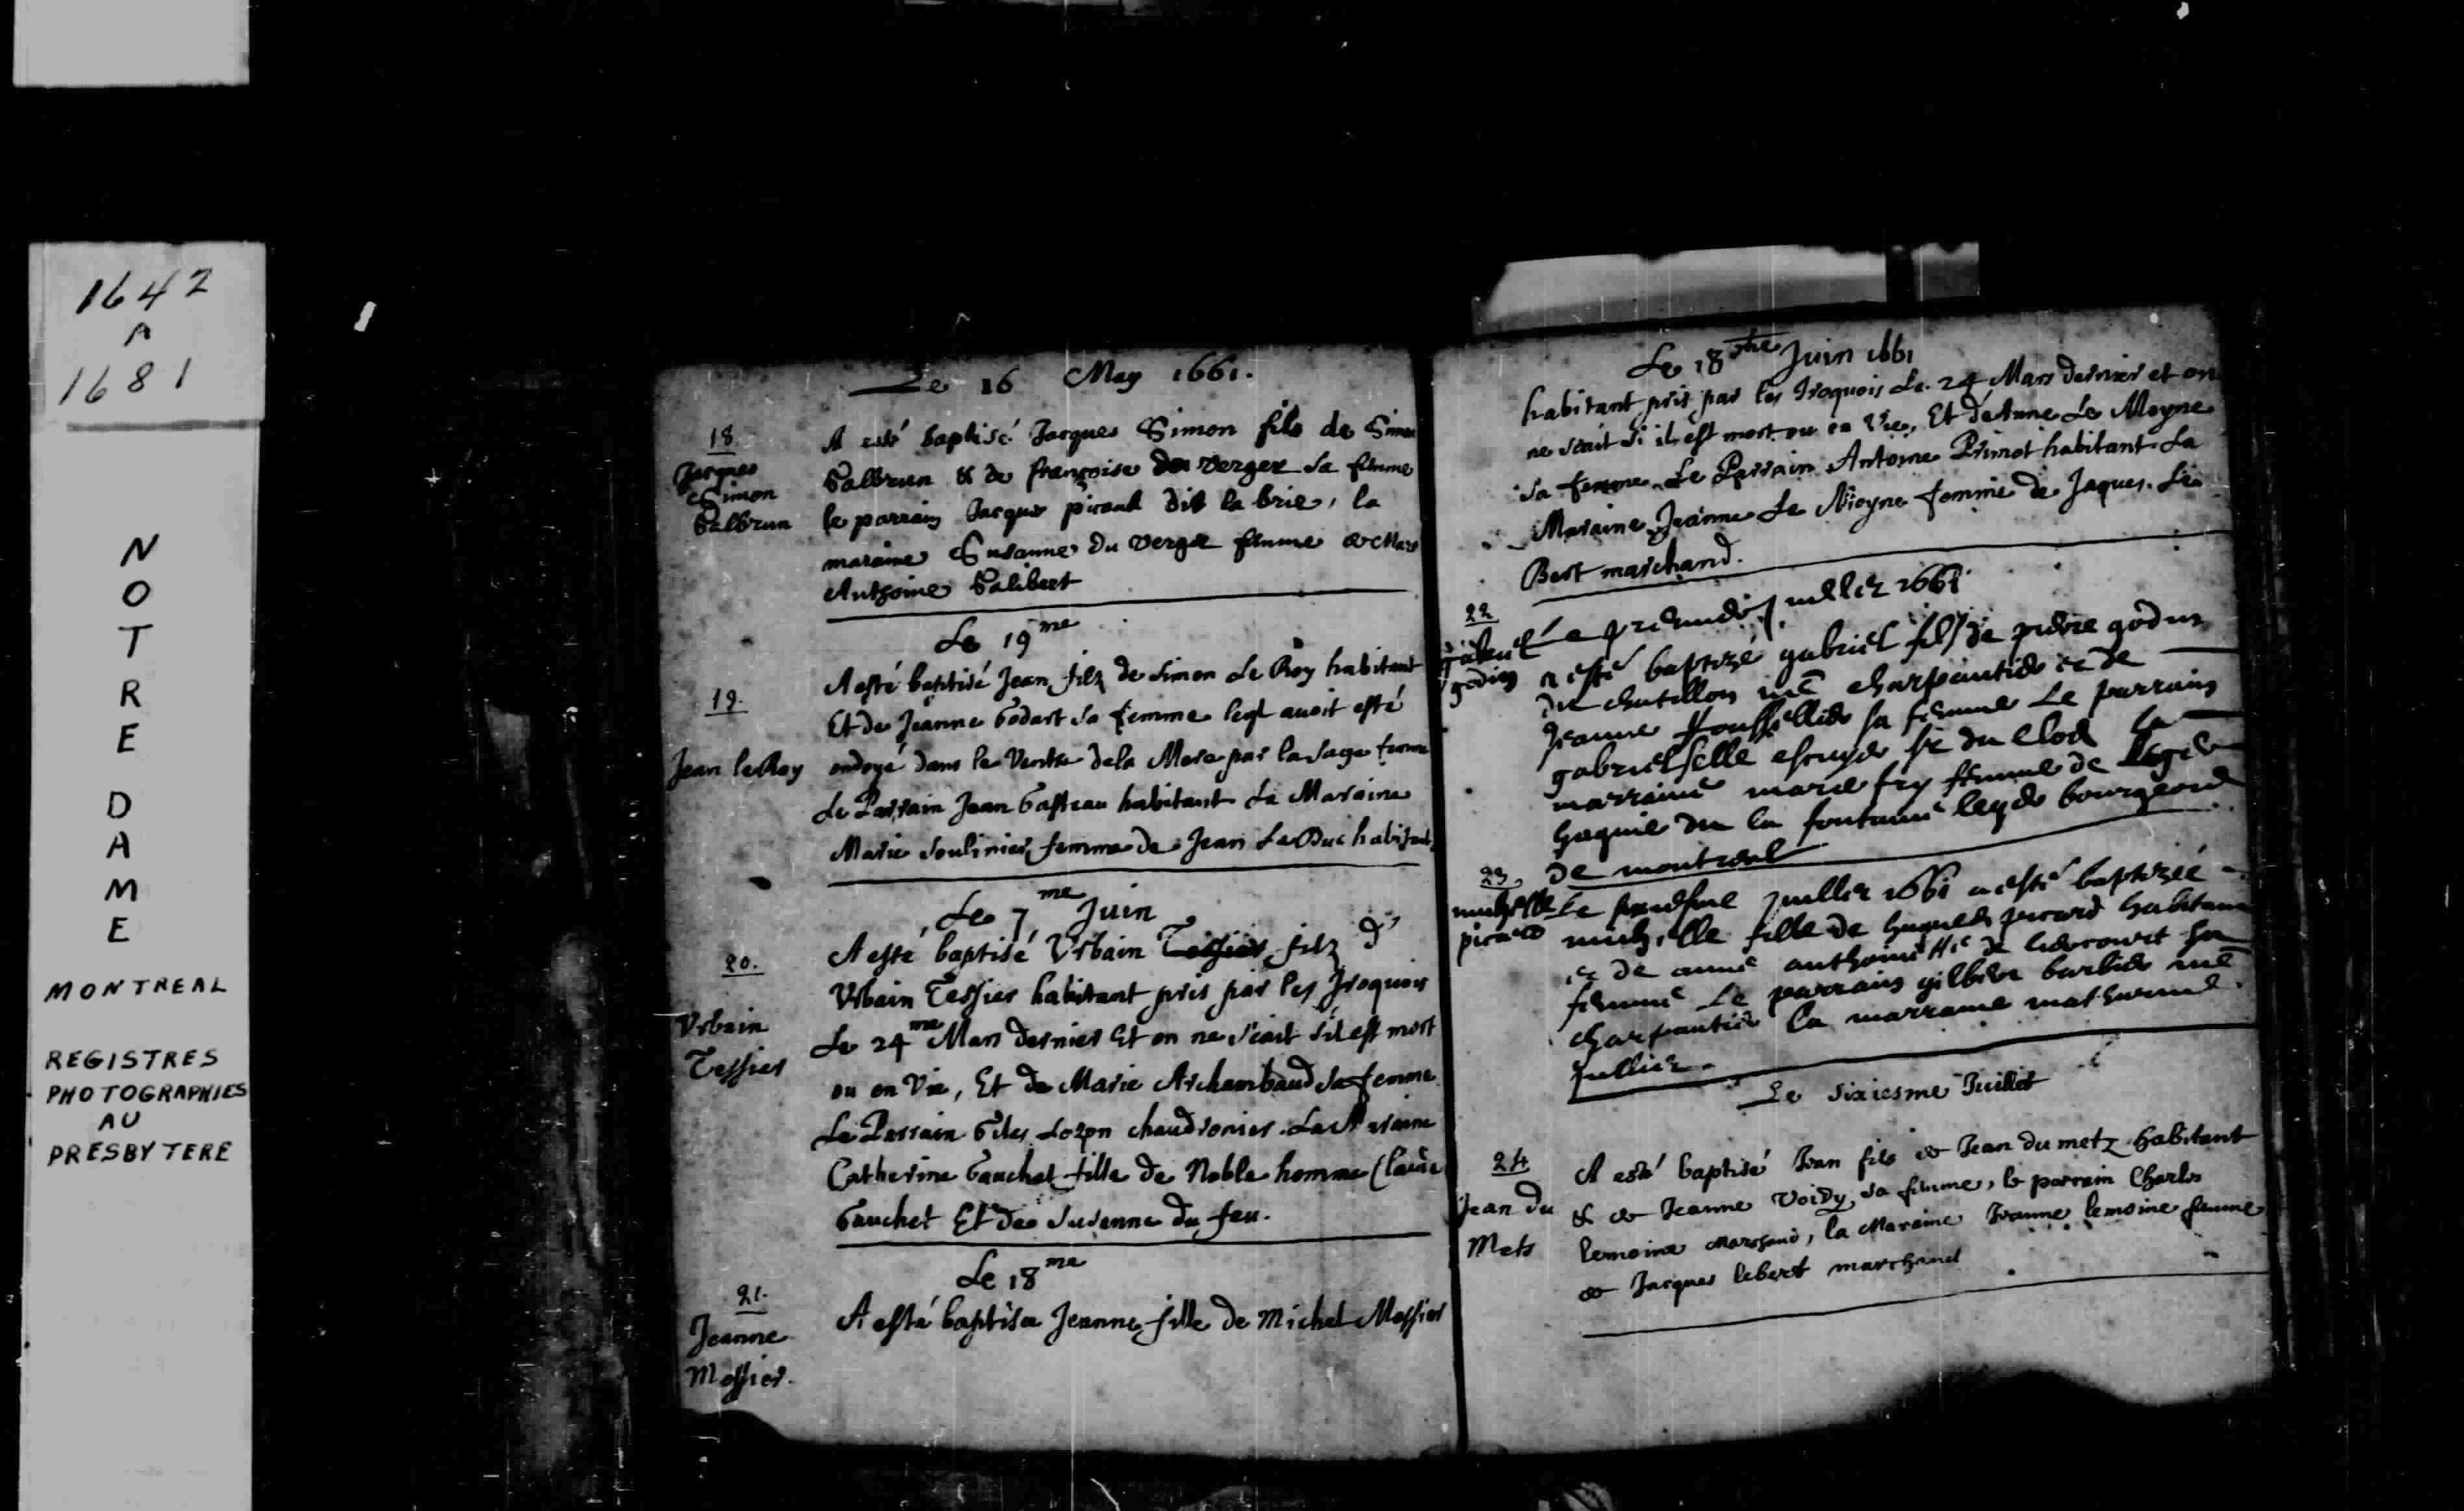 1642
A
1681
N
O
T
R
E
D
A
M
E
MONTREAL
REGISTRES
PHOTOGRAPHIES
AU
PRESBYTERE
Le 16 May 1661.
18
Jacques
Simon
Galbrun
A esté baptisé Jacques Simon fils de Simon
Galbrun & de françoise du verger sa femme
le parrain Jacques picand dit la brie, la
maraine Susanne du verger femme de Marc
Anthoine Galibert
Le 19me
19.
Jean le Roy
A esté baptisé Jean filz de Simon Le Roy habitant
Et de Jeanne Godart sa femme leql auoit esté
ondoyé dans le Ventre de la Mere par la sage femme
Le Parrain Jean Gasteau habitant La Maraine
Marie Soulinier femme de Jean Le Duc habitant
Le 7me Juin
20.
Vrbain
Tessier
A esté baptisé Vrbain Tessier filz d'
Vrbain Tessier habitant pris par les Iroquois
Le 24me Mars dernier Et on ne sçait s'il est mort
ou en Vie, Et de Marie Archambaud sa femme
Le Parrain Giles Lozon chaudronier. La Maraine
Catherine Gauchet fille de Noble homme Claude
Gauchet Et de Susenne du feu.
Le 18me
21.
Jeanne
Messier.
A esté baptisée Jeanne fille de Michel Messier
Le 18me Juin 1661
habitant pris par les Iroquois Le 24 Mars dernier et on
ne sçait s'il est mort ou en Vie, Et de Anne Le Moyne
sa femme Le Parrain Antoine Primot habitant La
Maraine Jeanne Le Moyne femme de Jaques Le
Bert marchand.
22
gabriel
godin
Le premier juillet 1661
a esté baptizé gabriel fils de pierre godin
du chatillon me charpantier et de
Jeanne Rousselliere sa femme Le parrain
gabriel selle esruyer sr du clod La
marraine marie fry femme de
haguie de la fontaine bourgeois
de montreal
23.
michelle
picard
Le juillet 1661 a esté baptizée
michelle fille de hugues picard habitant
et de anne anthoinette de liercourt sa
femme Le parrain gilbert barbier me
charpantier la marraine mathurine
jullier.
Le sixiesme Juillet
24
Jean du
Mets
A esté baptisé Jean fils de Jean du metz habitant
& de Jeanne Voidy sa femme, le parrain Charles
lemoine marchand, la Maraine Jeanne lemoine femme
de Jacques lebert marchand